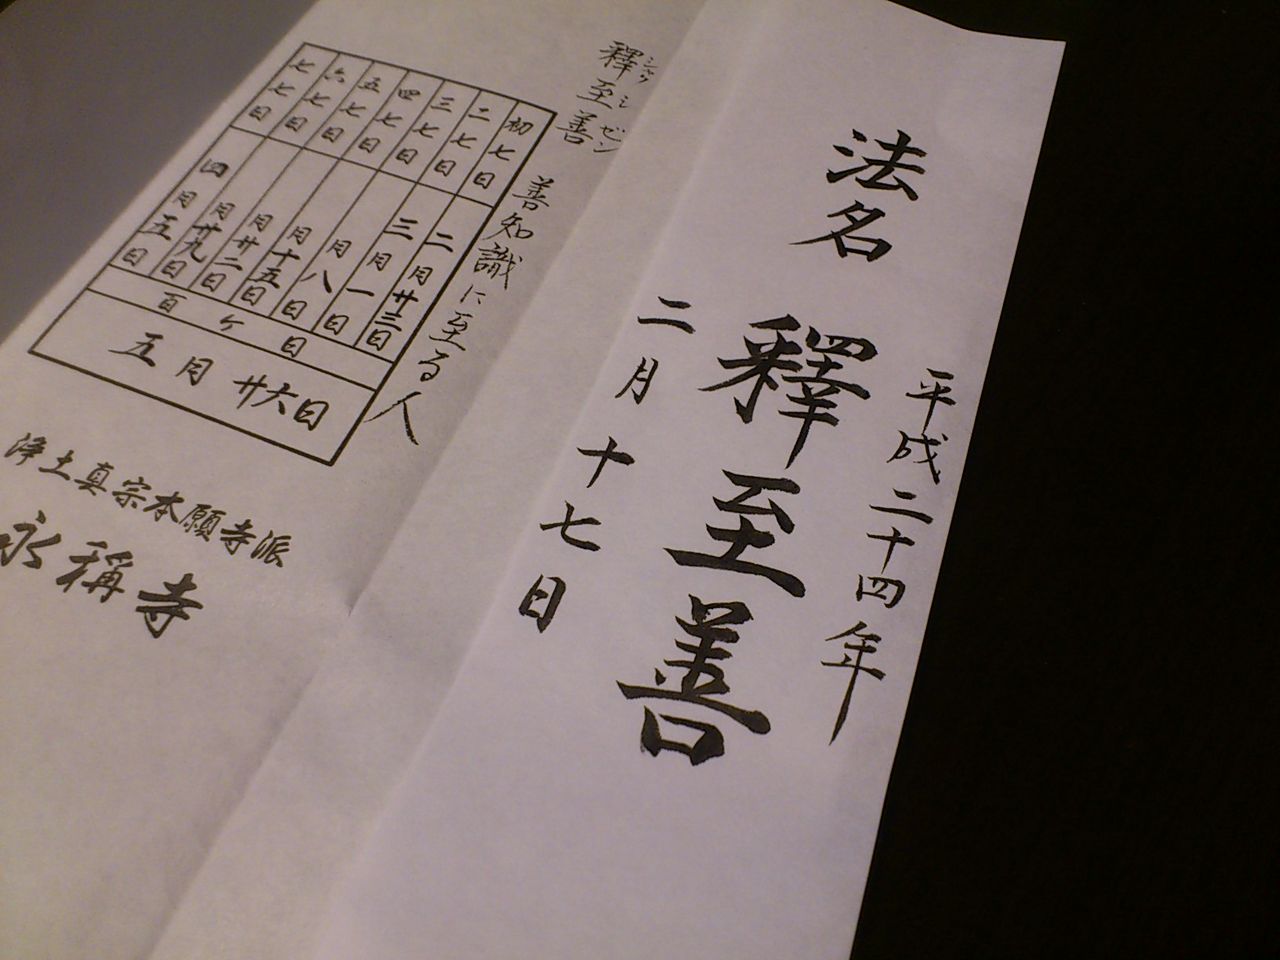 平成二十四年
法名 釋至善
二月十七日
シャクシゼン
釋至善 善知識に至る人
初七日 二月廿三日
二七日 三月一日
三七日 月八日
四七日 月十五日
五七日 月廿二日
六七日 月廿九日
七七日 四月五日
百ヶ日
五月廿六日
浄土真宗本願寺派
永稱寺